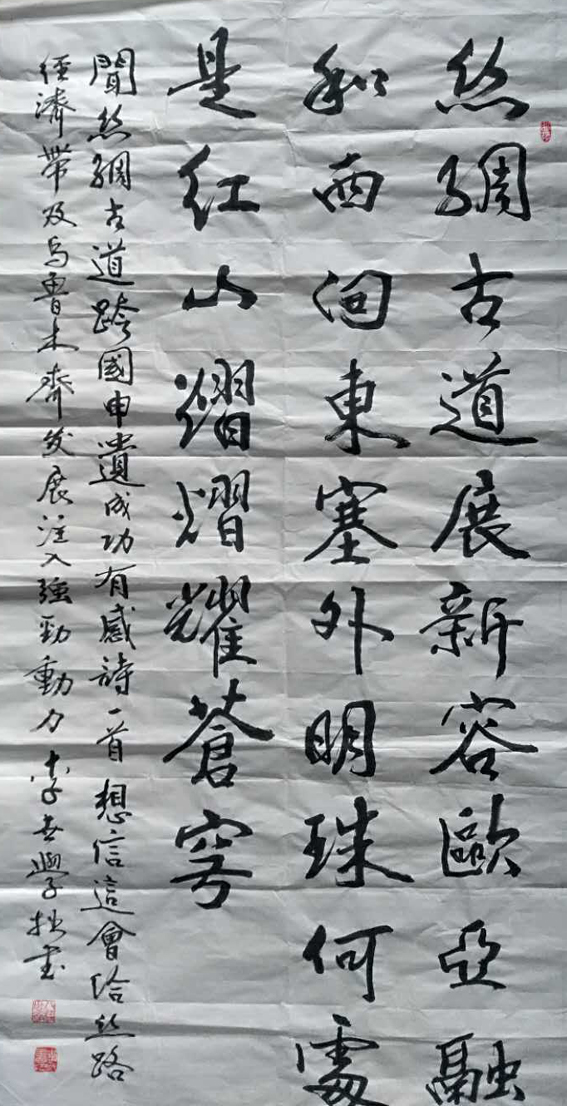 絲綢古道展新容歐亞融
和西回東塞外明珠何處
是紅山熠熠耀蒼穹
聞絲綢古道跨國申遺成功有感詩一首想信這會給絲路
經濟帶及烏魯木齊发展注入強勁動力李世學拙書